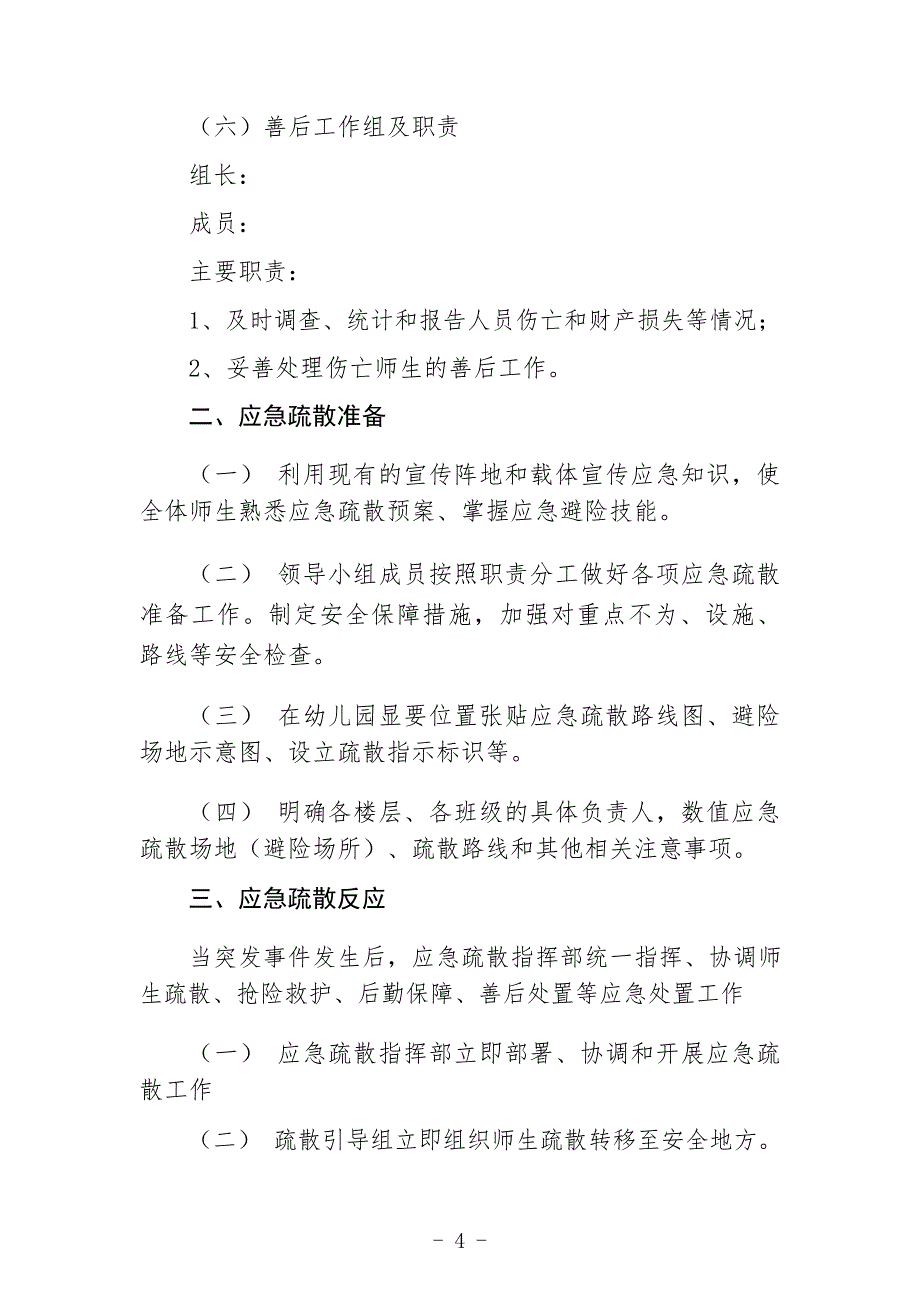 （六）善后工作组及职责
组长：
成员：
主要职责：
1、及时调查、统计和报告人员伤亡和财产损失等情况；
2、妥善处理伤亡师生的善后工作。
二、应急疏散准备
（一） 利用现有的宣传阵地和载体宣传应急知识，使
全体师生熟悉应急疏散预案、掌握应急避险技能。
（二） 领导小组成员按照职责分工做好各项应急疏散
准备工作。制定安全保障措施，加强对重点不为、设施、
路线等安全检查。
（三） 在幼儿园显要位置张贴应急疏散路线图、避险
场地示意图、设立疏散指示标识等。
（四） 明确各楼层、各班级的具体负责人，数值应急
疏散场地（避险场所）、疏散路线和其他相关注意事项。
三、应急疏散反应
当突发事件发生后，应急疏散指挥部统一指挥、协调师
生疏散、抢险救护、后勤保障、善后处置等应急处置工作
（一） 应急疏散指挥部立即部署、协调和开展应急疏
散工作
（二） 疏散引导组立即组织师生疏散转移至安全地方。
- 4 -